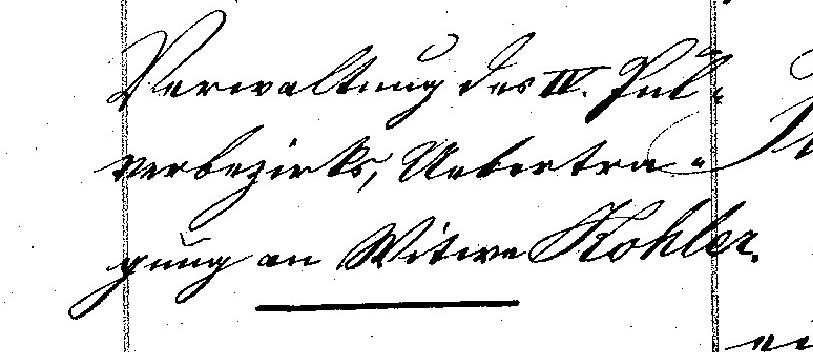 Verwaltung des IV. Pul-
verbezirks, Uebertra-
gung an Witwe Kohler.